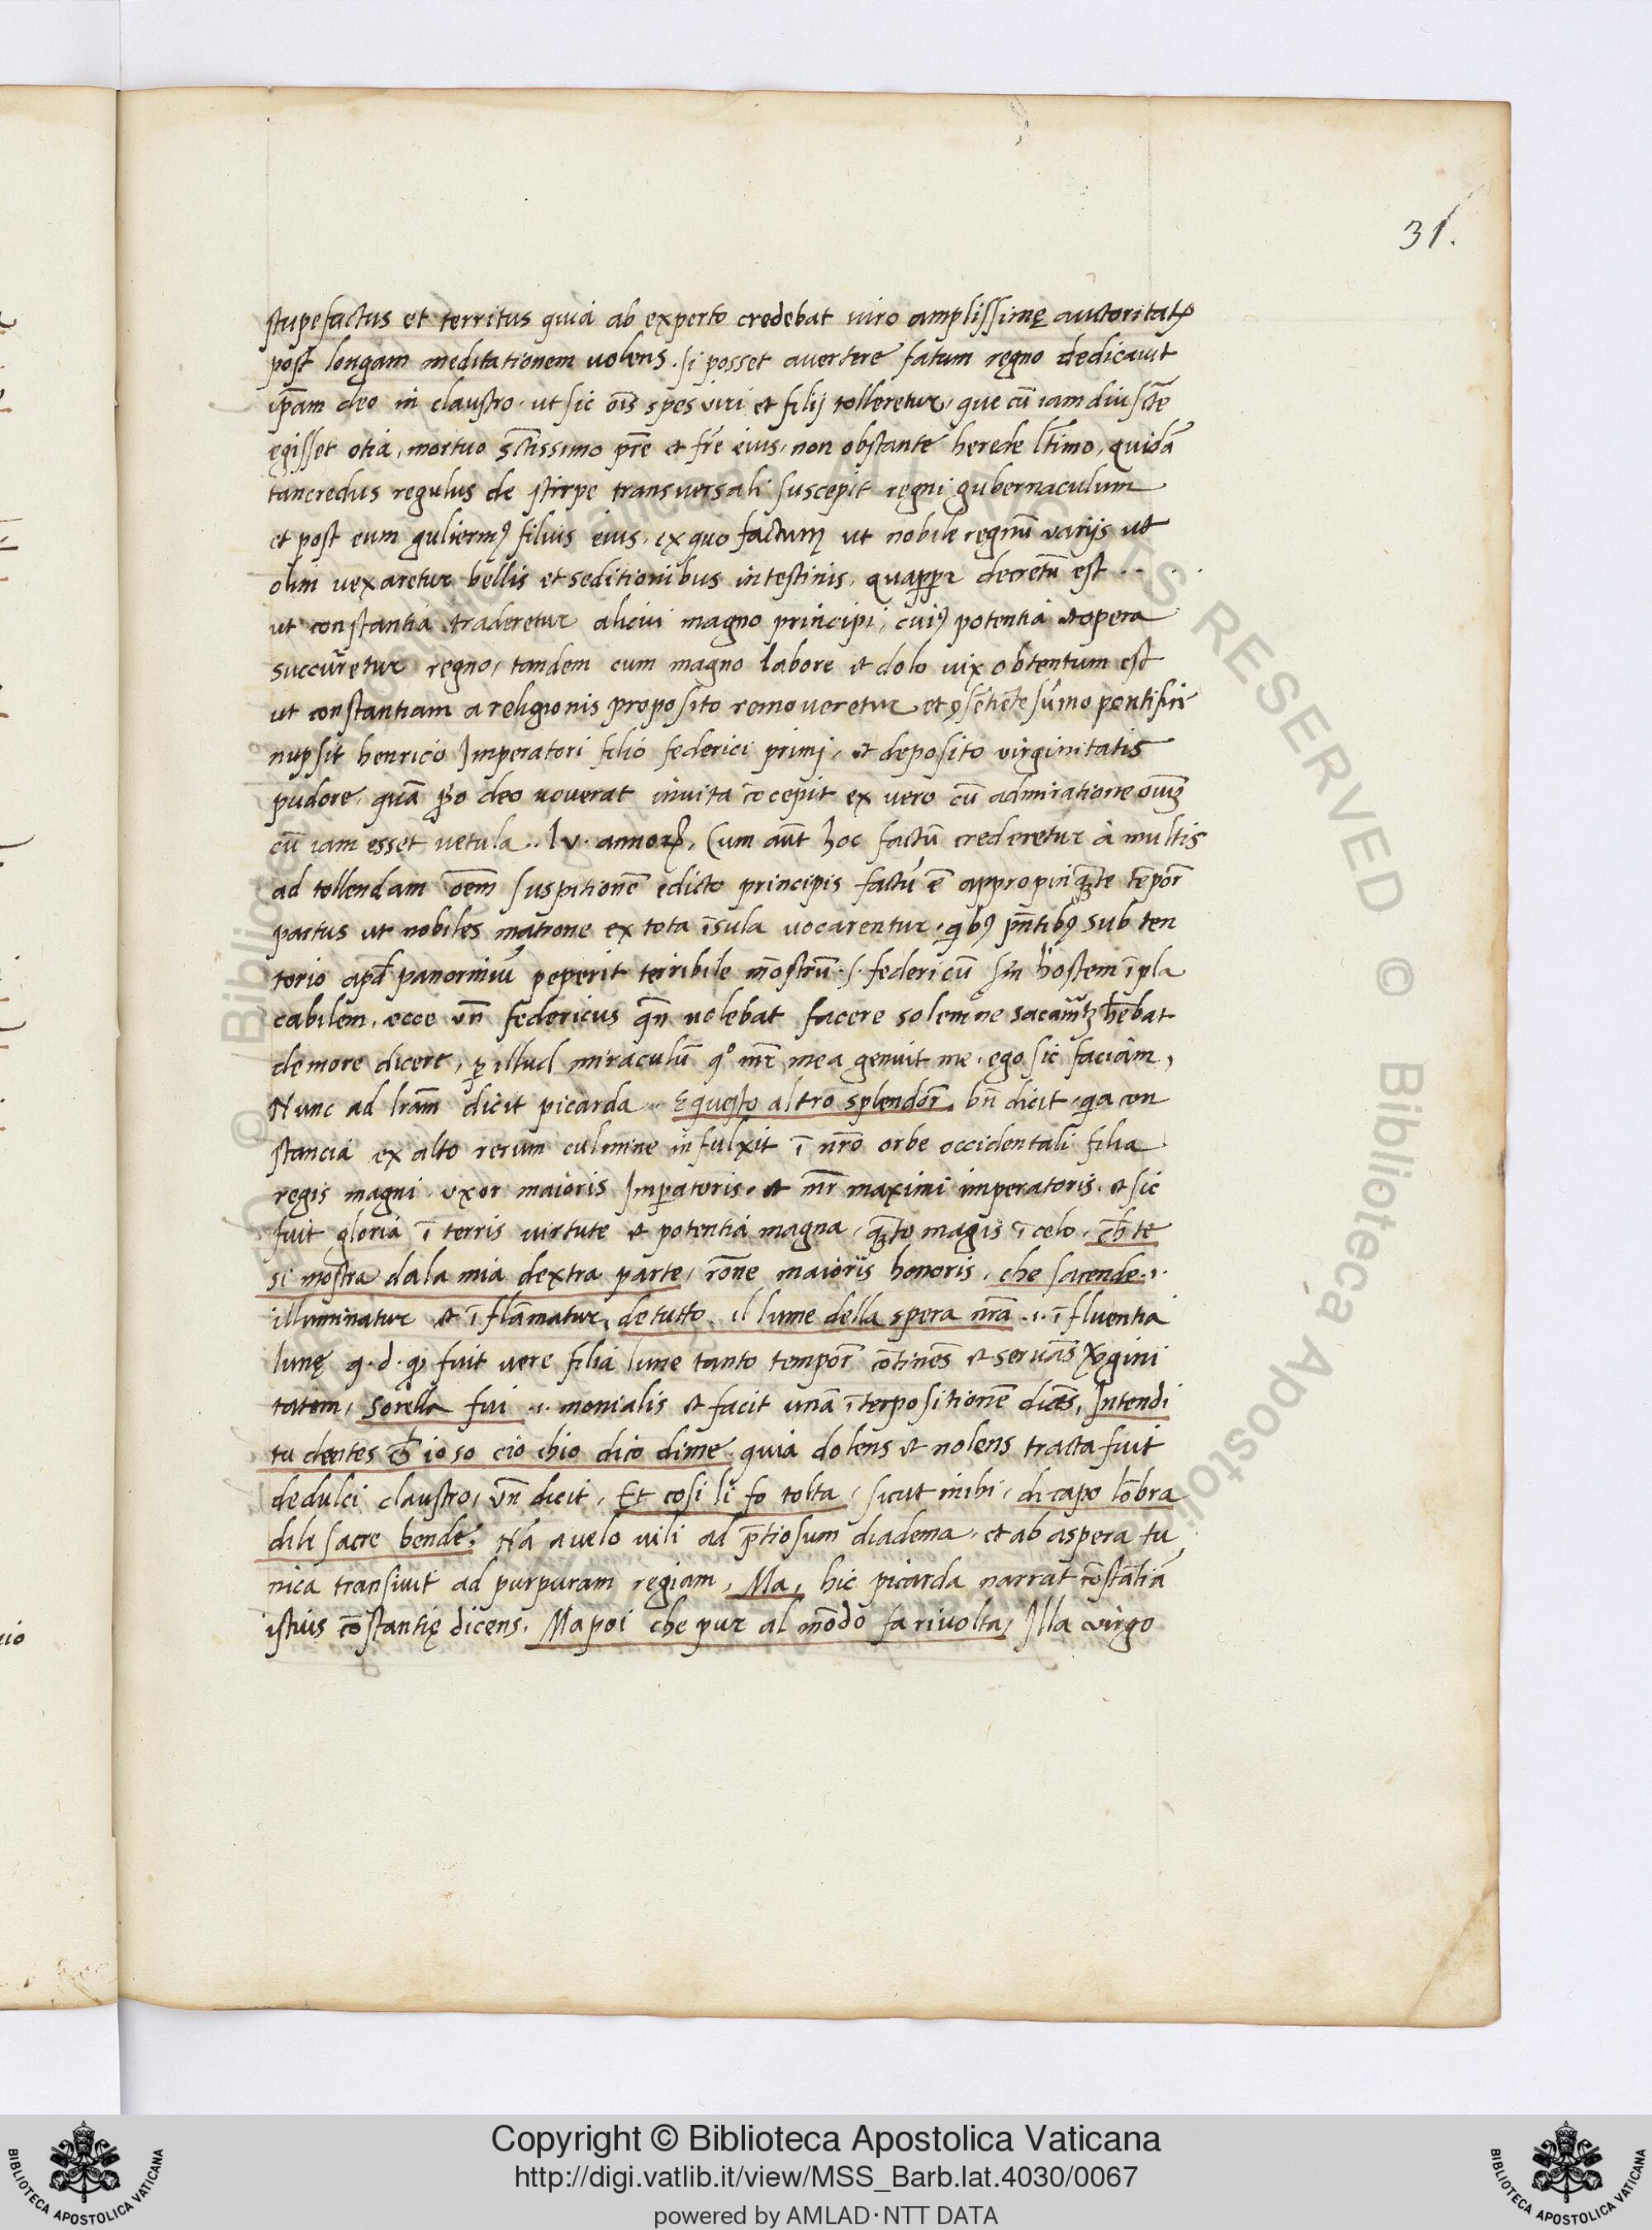 31.
stupefactus et territus quia ab experto credebat viro amplissimę auctoritatꝭ
post longam meditationem volens . si posset avertere fatum regno dedicavit
ip̄am deo in claustro . ut sic oīs spes viri et filij tolleretur, que cū iam diu sc̄te
ęgisset otia, mortuo sc̄tissimo pr̄e et fr̄e eius, non obstante herede lt̄imo, quidā
tancredus regulus de stirpe transversali suscepit regni gubernaculum
et post eum guliermꝰ filius eius, ex quo factum ut nobile regnū varijs ut
olim vexaretur bellis et seditionibus intestinis, quapp̱ꝛ decretū est . . .
ut constantia traderetur alicui magno principi, cuiꝰ potentia et opera
succurretur regno, tandem cum magno labore et dolo vix obtentum est
ut constantiam a religionis proposito removeretur et ꝯsētiēte sūmo pontifici
nupsit henrico Imperatori filio federici primj, et deposito virginitatis
pudore, quā p̱o deo voverat invita cōcepit ex vero cū admiratione oīuꝫ
cū iam esset vetula .. lv. annoꝝ, Cum aūt hoc factū crederetur a multis
ad tollendam oēm suspitionē edicto principis factū ē appropinquāte tēpoꝛ
partus ut nobiles matrone ex tota īsula vocarentur, qibꝰ pn̄tibꝰ sub ten
torio apd̄ panormiū peperit terribile mōstrū .s. federicū sn̄ hostem īpla
cabilem, ecce vn̄ federicus qn̄ volebat facere solemne sacam̄tꝫ hēbat
de more dicere, ꝑ illud miraculū qͦ mr̄ mea genuit me, ego sic faciam,
Nunc ad lr̄am dicit picarda .. E questo altro splendoꝛ, bn̄ dicit, qa con
stancia ex alto rerum culmine infulxit ī nr̄o orbe occidentali filia
regis magni, uxor maioris Imp̱atoris, et mr̄ maximi imperatoris, et sic
fuit gloria ī terris virtute et potentia magna, quāto magis ī celo, ch̄ te
si mostra dala mia dextra parte, rōne maioris honoris, che sacende .i.
illuminatur et īflāmatur, de tutto il lume della spera nr̄a .i. īfluentia
lunę q.d. qꝫ fuit vere filia lune tanto tempoꝛ cōtinēs et servās v̄gini
tatem, sorella fui .i. monialis et facit unā īterpositionē dicēs, Intendi
tu dentes ch̄ io so cio chio dico dime quia dolens et nolens tracta fuit
de dulci claustro, vn̄ dicit, Et cosi li fo tolta, sicut mibi, di capo lōbra
dile sacre bende, Nā a velo vili ad p̄tiosum diadema, et ab aspera tu
nica transivit ad purpuram regiam, Ma, hic picarda narrat cōstātiā
istius cōstantię dicens, Ma poi che pur al mōdo fa rivolta, Illa virgo
Copyright © Biblioteca Apostolica Vaticana
http://digi.vatlib.it/view/MSS_Barb.lat.4030/0067
powered by AMLAD·NTT DATA
BIBLIOTECA APOSTOLICA VATICANA
BIBLIOTECA APOSTOLICA VATICANA